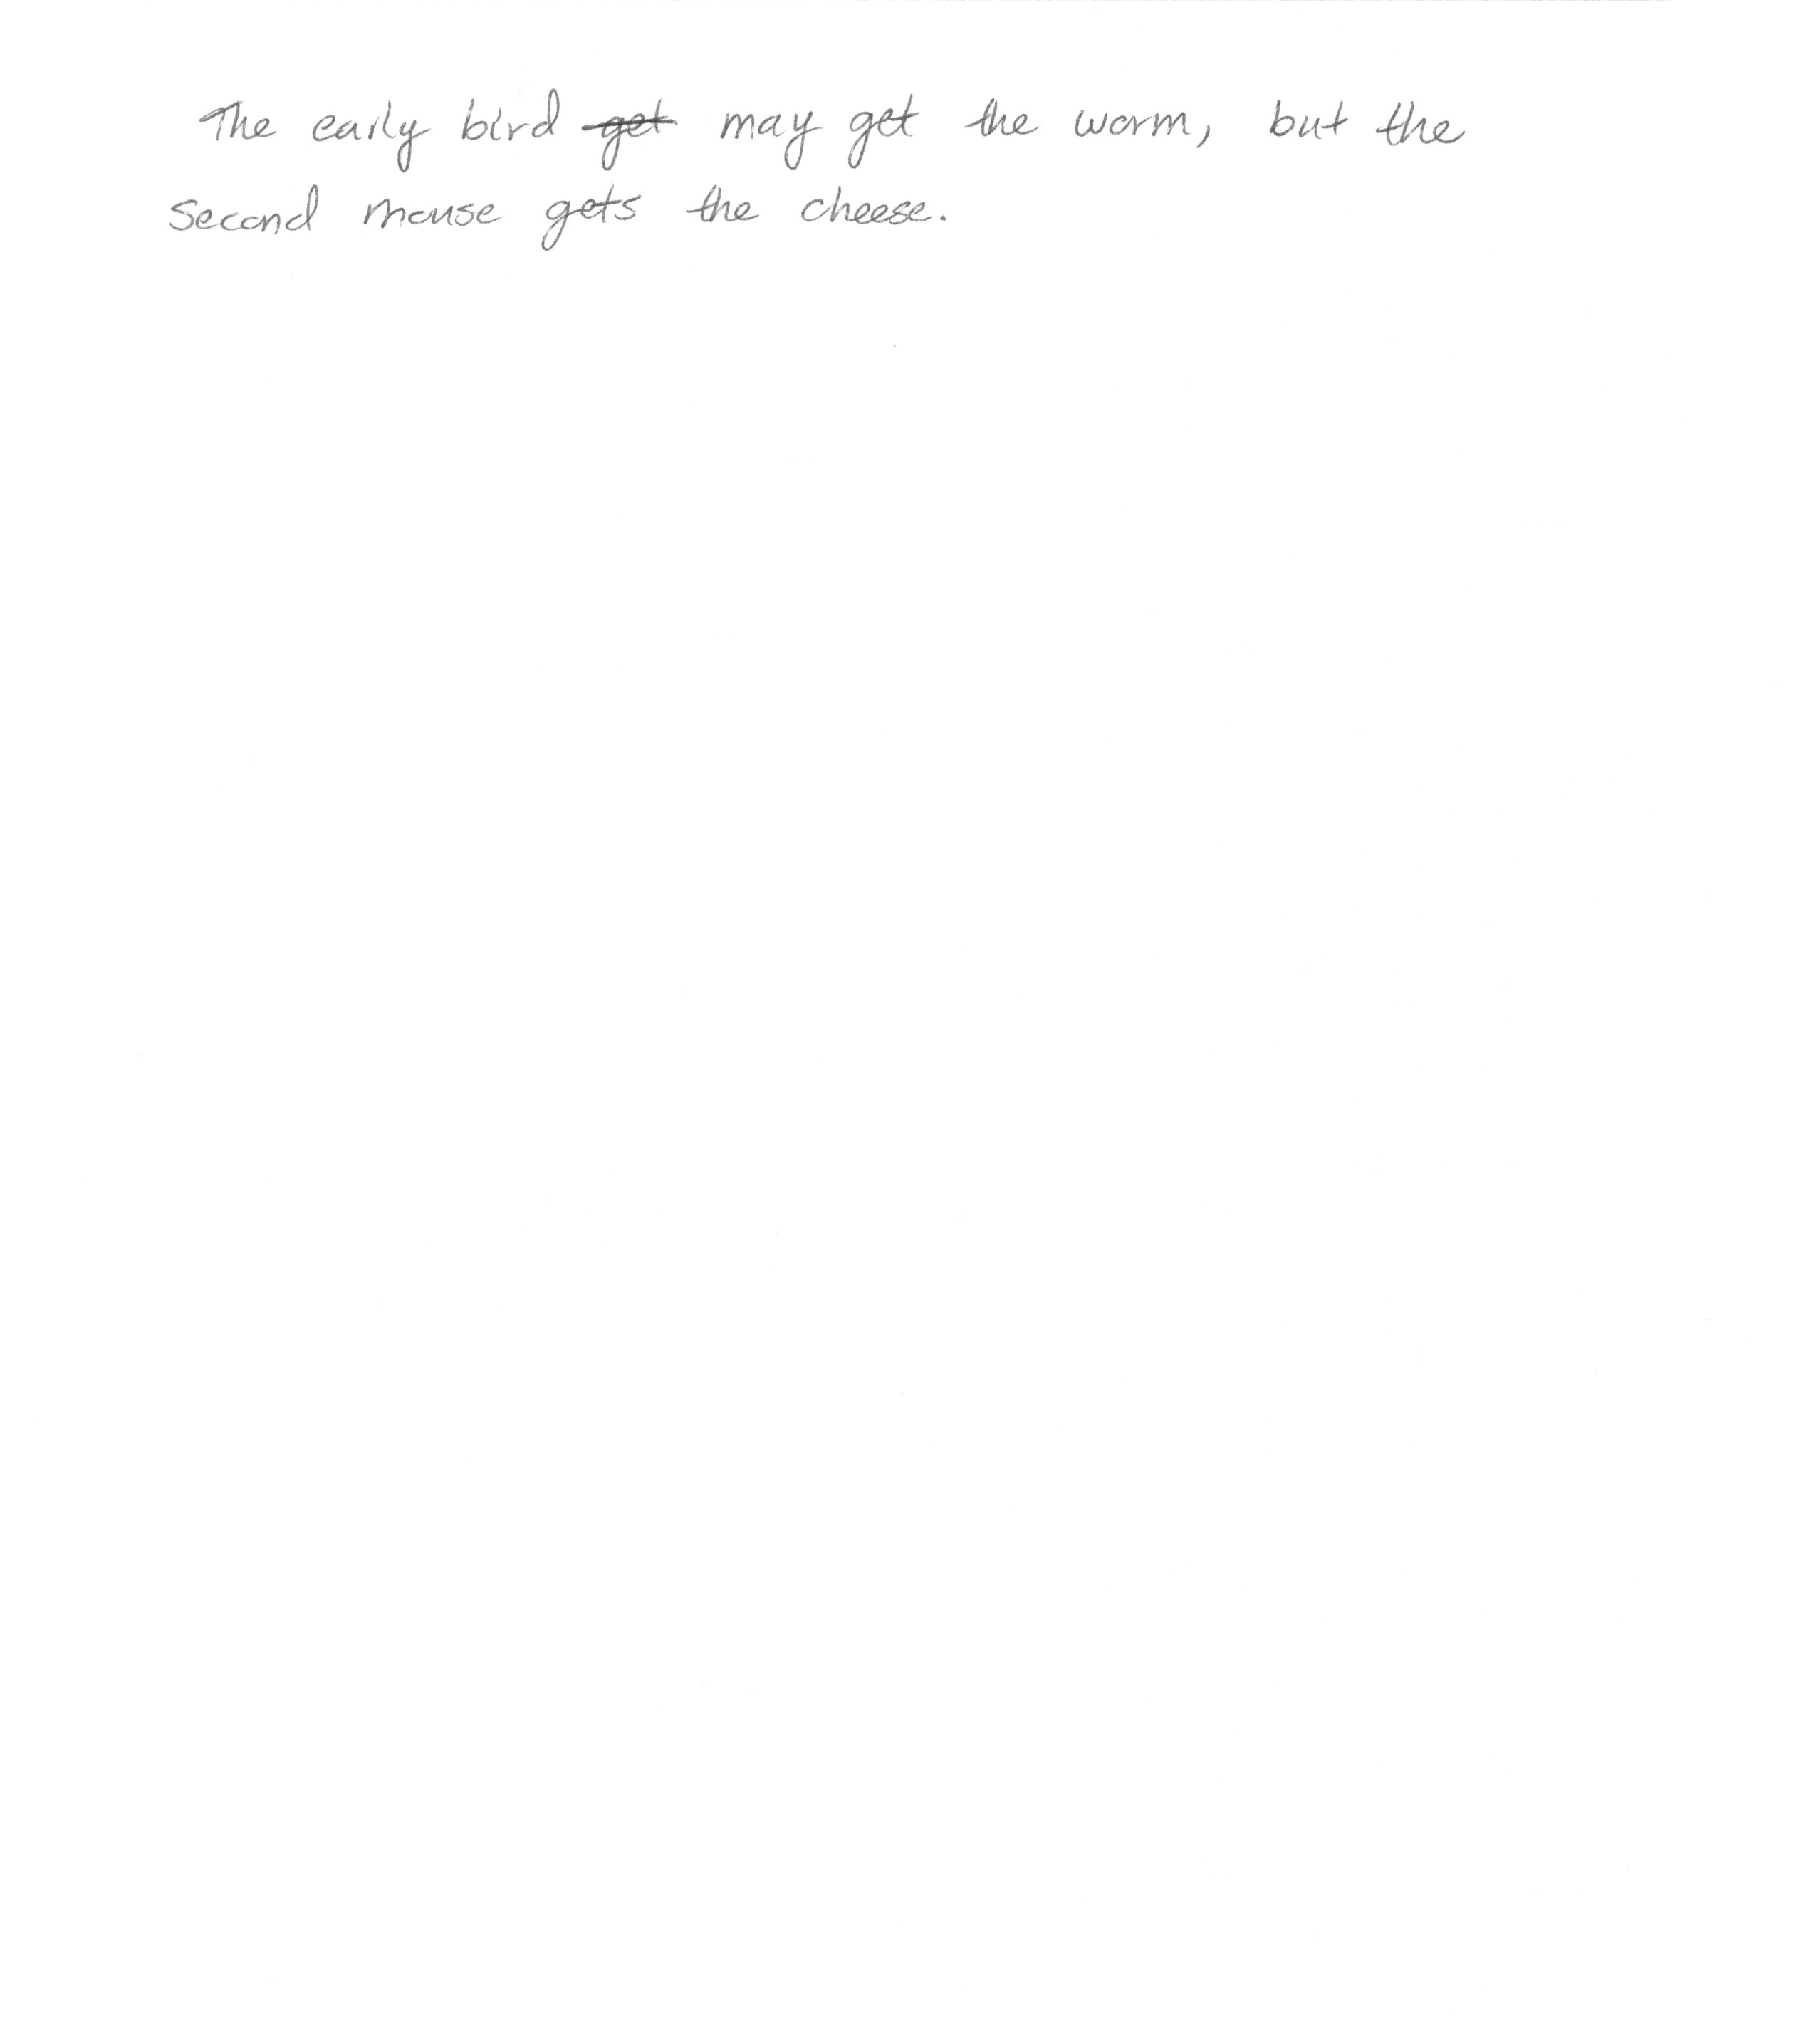 The early bird get may get the worm, but the
second mouse gets the cheese.